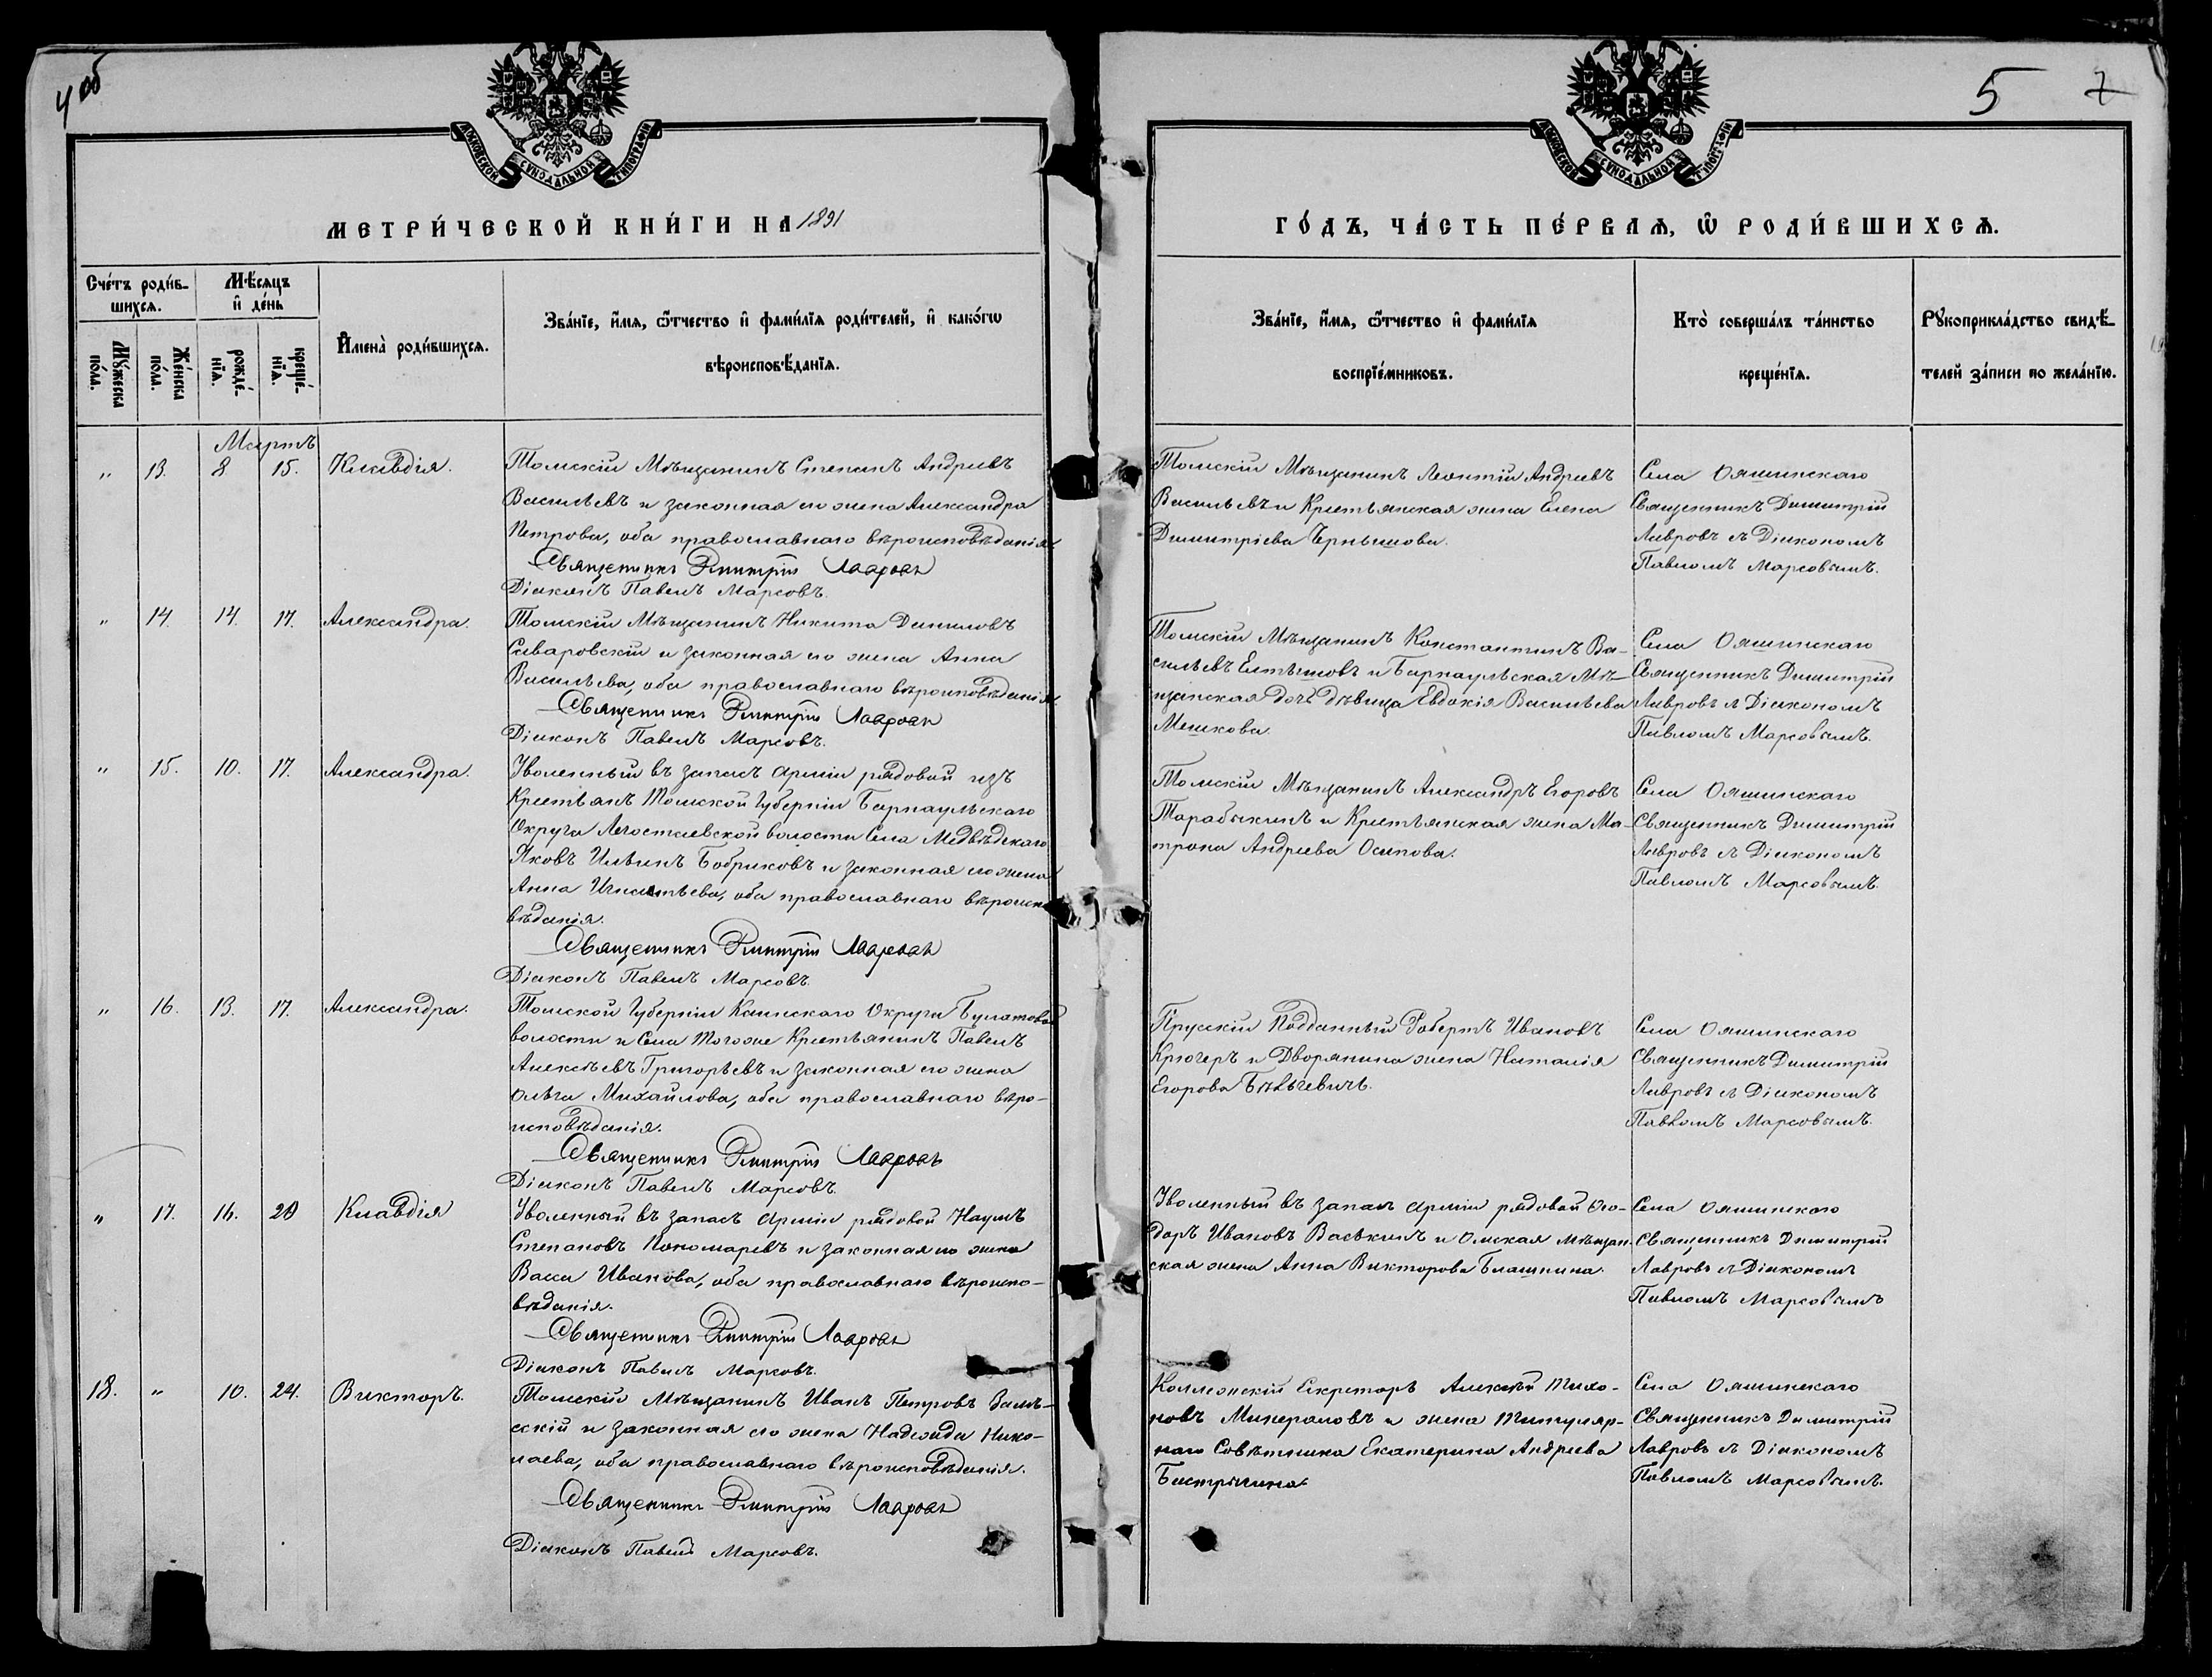 4 об
5 7
МОСКОВСКОЙ СѴНОДАЛЬНОЙ ТИПОГРАФІИ
МОСКОВСКОЙ СѴНОДАЛЬНОЙ ТИПОГРАФІИ
МЕТРИ́ЧЕСКОЙ КНИ́ГИ НА 1891
ГО́ДЪ, ЧА́СТЬ ПЕ́РВАѦ, Ѿ РОДИ́ВШИХСѦ.
Сче́тъ роди́в-
шихсѧ.
Мѣ́сѧцъ
и҆ де́нь
Мꙋ́жеска
по́ла.
Же́нска
по́ла.
рожде́-
нїѧ.
креще́-
нїѧ.
И҆мена̀ роди́вшихсѧ.
Зва́нїе, и҆́мѧ, ѻ҆́тчество и҆ фами́лїѧ роди́телей, и҆ како́гѡ
вѣроисповѣ́данїѧ.
Зва́нїе, и҆́мѧ, ѻ҆́тчество и҆ фами́лїѧ
воспрїе́мниковъ.
Кто̀ соверша́лъ та́инство
креще́нїѧ.
Рꙋкоприкла́дство свидѣ́-
телей за́писи по жела́нїю.
Мартъ
" 13. 8 15. Клавдія.
Томскій Мѣщанинъ Степанъ Андреевъ
Васильевъ и законная его жена Александра
Петрова, оба православнаго вѣроисповѣданія
Священникъ Димитрій Лавровъ
Діаконъ Павелъ Марсовъ.
Томскій Мѣщанинъ Леонтій Андреевъ
Васильевъ и Крестьянская жена Елена
Димитріева Чернышова.
Села Ояшинскаго
Священникъ Димитрій
Лавровъ съ Діакономъ
Павломъ Марсовымъ.
" 14. 14. 17. Александра.
Томскій Мѣщанинъ Никита Даниловъ
Сиваровскій и законная его жена Анна
Васильева, оба православнаго вѣроисповѣданія
Священникъ Димитрій Лавровъ
Діаконъ Павелъ Марсовъ.
Томскій Мѣщанинъ Константинъ Ва-
сильевъ и Барнаульская Мѣ-
щанская дочь дѣвица Евдокія Васильева
Мешкова.
Села Ояшинскаго
Священникъ Димитрій
Лавровъ съ Діакономъ
Павломъ Марсовымъ.
" 15. 10. 17. Александра.
Уволенный въ запасъ арміи рядовой изъ
Крестьянъ Томской Губерніи Барнаульскаго
Округа Легостаевской волости Села Медвѣдскаго
Яковъ Ильинъ Бобриковъ и законная его жена
Анна Игнатьева, оба православнаго вѣроиспо
вѣданія.
Священникъ Димитрій Лавровъ
Діаконъ Павелъ Марсовъ.
Томскій Мѣщанинъ Александръ Егоровъ
Тарабыкинъ и Крестьянская жена Ма-
трона Андреева Осипова.
Села Ояшинскаго
Священникъ Димитрій
Лавровъ съ Діакономъ
Павломъ Марсовымъ.
" 16. 13. 17. Александра.
Томской Губерніи Каинскаго Округа Булатовой
волости и Села тогоже Крестьянинъ Павелъ
Алексѣевъ Григорьевъ и законная его жена
Ольга Михайлова, оба православнаго вѣро-
исповѣданія.
Священникъ Димитрій Лавровъ
Діаконъ Павелъ Марсовъ.
Прусскій Подданный Робертъ Ивановъ
Крюгеръ и Дворянина жена Наталія
Егорова
Села Ояшинскаго
Священникъ Димитрій
Лавровъ съ Діакономъ
Павломъ Марсовымъ.
" 17. 16. 20 Клавдія
Уволенный въ запасъ арміи рядовой Наумъ
Степановъ Пономаревъ и законная его жена
Васса Иванова, оба православнаго вѣроиспо-
вѣданія.
Священникъ Димитрій Лавровъ
Діаконъ Павелъ Марсовъ.
Уволенный въ запасъ арміи рядовой Ѳео-
доръ Ивановъ Васькинъ и Омская мѣщан-
ская жена Анна Викторова Блашнина.
Села Ояшинскаго
Священникъ Димитрій
Лавровъ съ Діакономъ
Павломъ Марсовымъ
18. " 10. 24. Викторъ.
Томскій Мѣщанинъ Иванъ Петровъ Залѣ-
сскій и законная его жена Надежда Нико-
лаева, оба православнаго вѣроисповѣданія.
Священникъ Димитрій Лавровъ
Діаконъ Павелъ Марсовъ.
Коллежскій Секретарь Алексѣй Тихо-
новъ Минераловъ и жена Титуляр-
наго Совѣтника Екатерина Андреева
Села Ояшинскаго
Священникъ Димитрій
Лавровъ съ Діакономъ
Павломъ Марсовымъ.